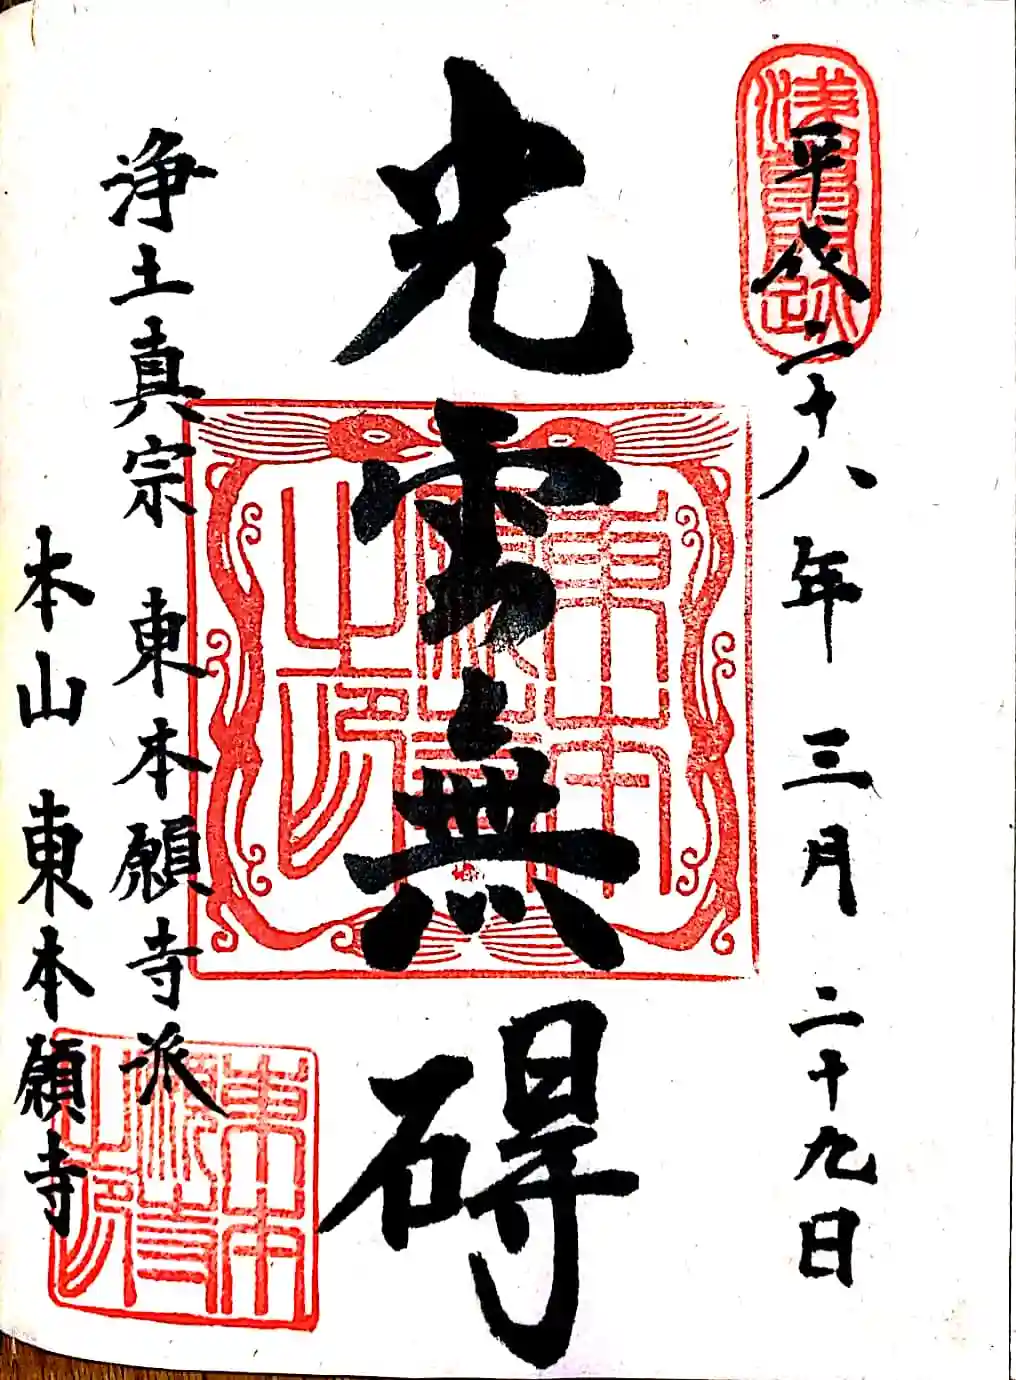 平成二十八年 三月 二十九日
浅草門跡
光雲無碍
東本願寺之印
浄土真宗 東本願寺派
本山 東本願寺
東本願寺之印